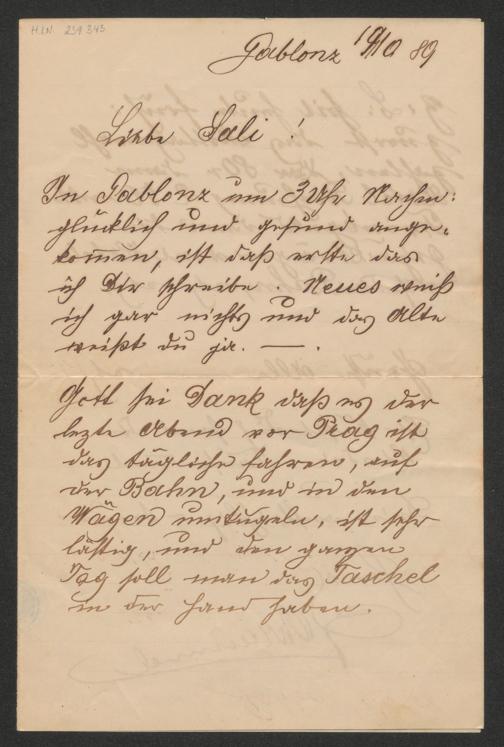 H.I.N. 239 343
Gablonz 19/10 89
Liebe Sali!
In Gablonz um 3 Uhr Nachm:
glücklich und gesund ange-
kommen, ist daß erste das
ich Dir schreibe. Neues weiß
ich gar nichts und das Alte
weißt du ja. — .
Gott sei Dank daß es der
lezte Abend vor Prag ist
das tägliche fahren, auf
der Bahn, und in den
Wägen umkugeln, ist sehr
lästig, und den ganzen
Tag soll man das Taschel
in der Hand haben.